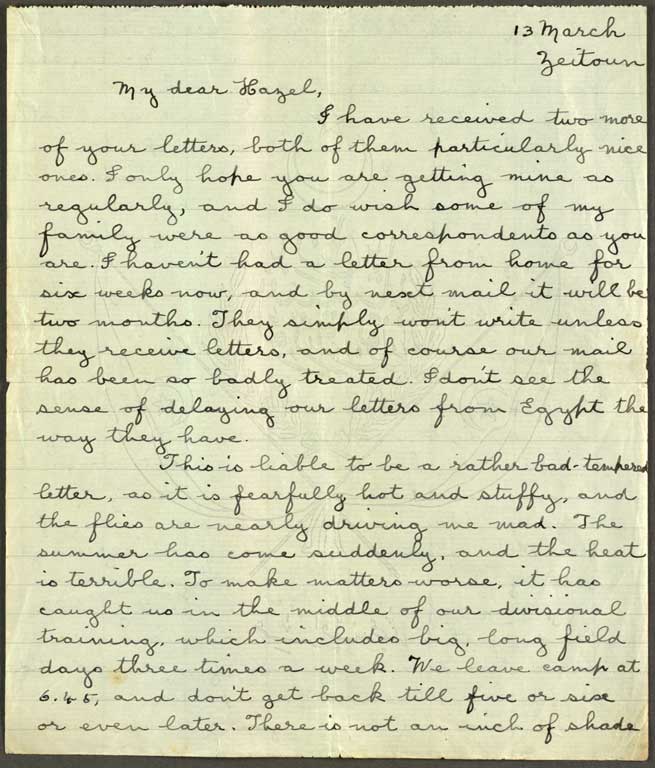 13 March
Zeitoun
My dear Hazel,
I have received two more
of your letters, both of them particularly nice
ones. I only hope you are getting mine as
regularly, and I do wish some of my
family were as good correspondents as you
are. I haven't had a letter from home for
six weeks now, and by next mail it will be
two months. They simply won't write unless
they receive letters, and of course our mail
has been so badly treated. I don't see the
sense of delaying our letters from Egypt the
way they have.
This is liable to be a rather bad-tempered
letter, as it is fearfully hot and stuffy, and
the flies are nearly driving me mad. The
summer has come suddenly, and the heat
is terrible. To make matters worse, it has
caught us in the middle of our divisional
training, which includes big, long field
days three times a week. We leave camp at
6.45, and don't get back till five or six
or even later. There is not an inch of shade